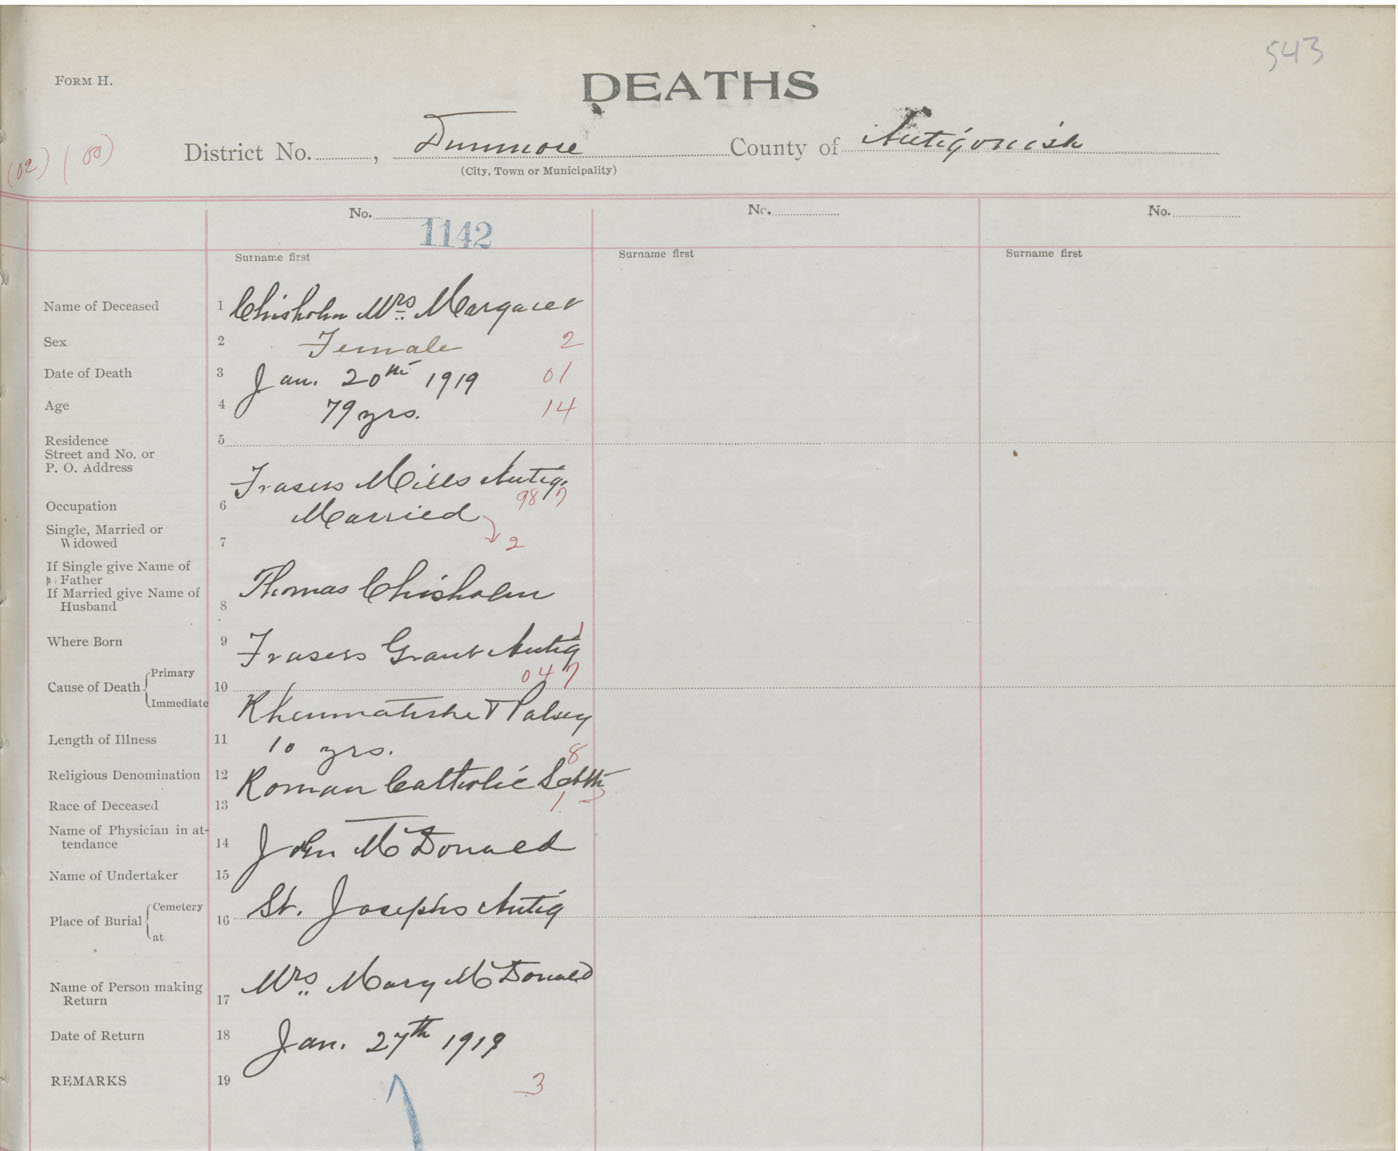 543
FORM H.
DEATHS
(02) (00)
District No. , Dunmore County of Antigonish
(City, Town or Municipality)
No. No. No.
1142
Surname first Surname first Surname first
Name of Deceased 1 Chisholm Mrs. Margaret
Sex 2 Female 2
Date of Death 3 Jan. 20th 1919 01
Age 4 79 yrs. 14
Residence 5
Street and No. or
P. O. Address
Frasers Mills Antig.
Occupation 6 987
Married
Single, Married or
Widowed 7 2
If Single give Name of
Father
If Married give Name of
Husband 8 Thomas Chisholm
Where Born 9 Frasers Grant Antig
047
Cause of Death Primary 10
Immediate Rheumatishe & Palsey
Length of Illness 11 10 yrs.
8
Religious Denomination 12 Roman Catholic
Race of Deceased 13 1
Name of Physician in at-
tendance 14 John McDonald
Name of Undertaker 15
Place of Burial Cemetery 16 St. Josephs Antig
at
Name of Person making
Return 17 Mrs. Mary McDonald
Date of Return 18 Jan. 27th 1919
REMARKS 19 3